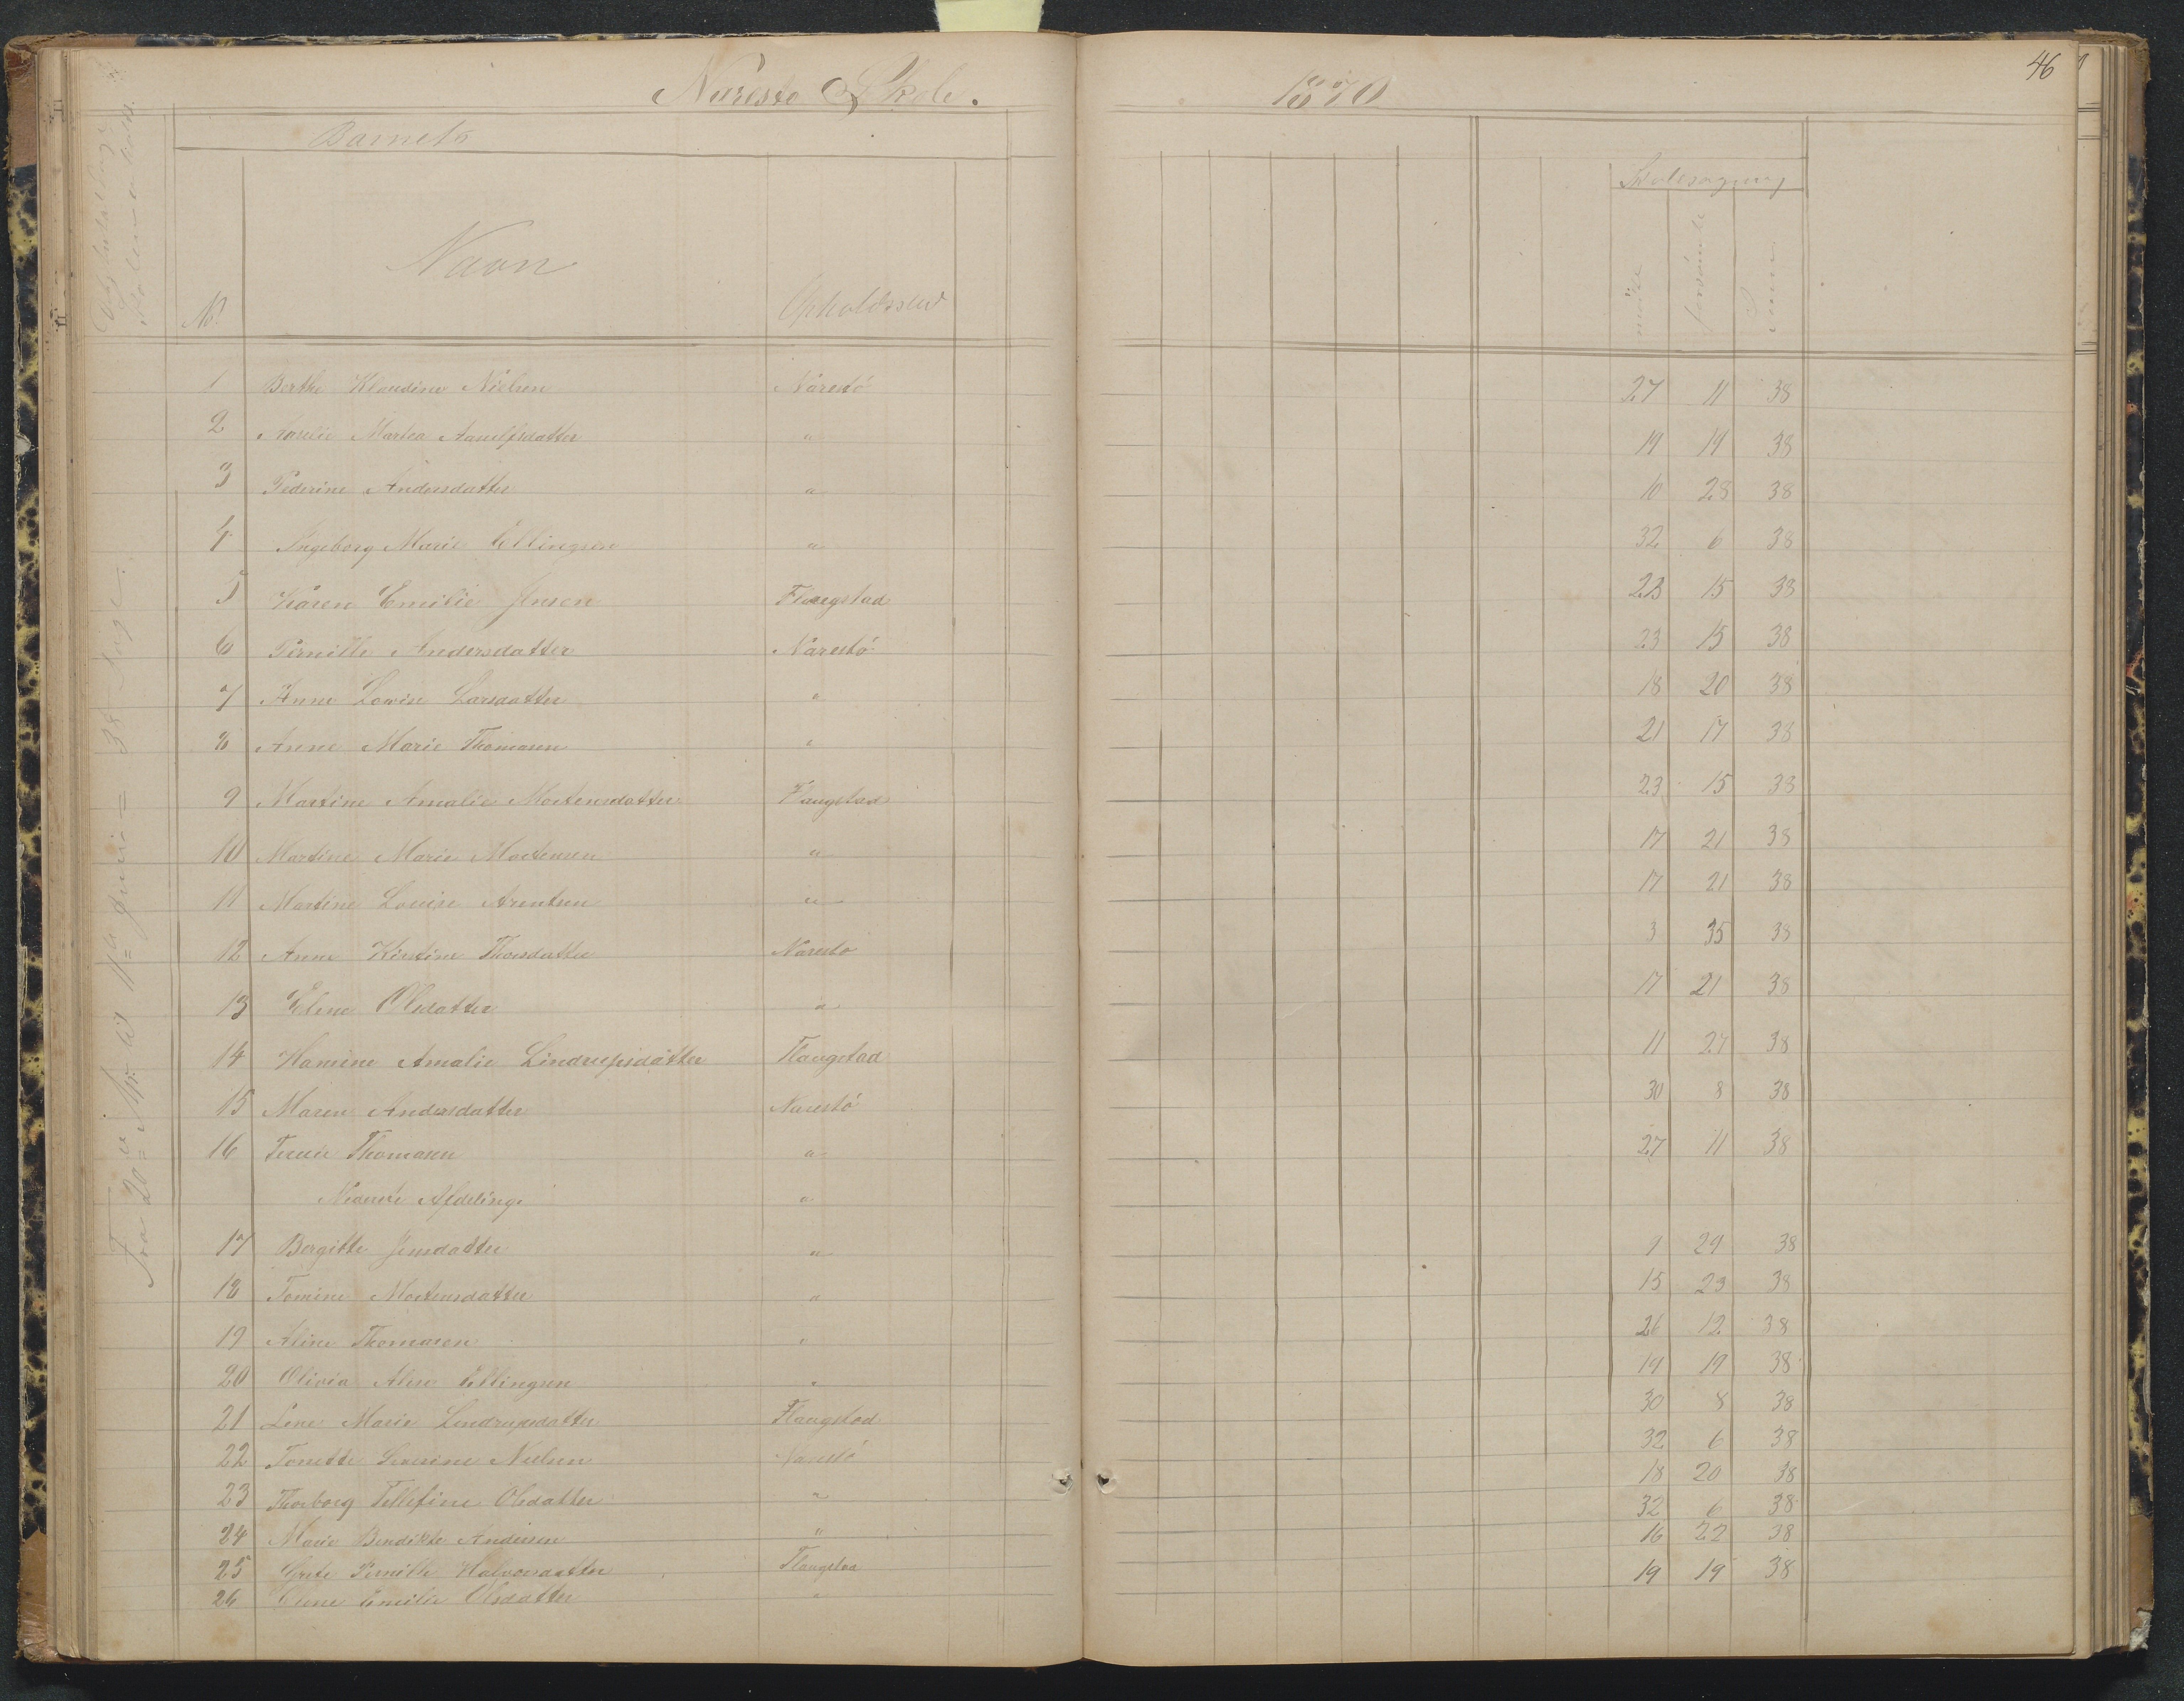 46
Naresto Skole. 1870
Barnets
Skolesøgning
N.
Navn
Opholdssted
mödte
forsömte
Sum
Fra 20de Apr. til 11te Juni = 38 Dage.
1 Berthe Klaudine Nielsen Narestö 27 11 38
2 Marthea Aanulfsdatter " 19 19 38
3 Pederine Andersdatter " 10 28 38
4 Ingeborg Marie Ellingsen " 32 6 38
5 Karen Emilie Jensen Flaugstad 23 15 38
6 Pernille Andersdatter Narestö 23 15 38
7 Anne Lovise Larsdatter " 18 20 38
8 Anne Marie Thomasen " 21 17 38
9 Martine Amalie Mortensdatter Flaugstad 23 15 38
10 Martine Marie Mortensen " 17 21 38
11 Martine Louise Arentsen " 17 21 38
12 Anne Kirstine Thorsdatter Naresto 3 35 38
13 Eline Olsdatter " 17 21 38
14 Hansine Amalie Lindrupsdatter Flaugstad 11 27 38
15 Maren Andersdatter Narestö 30 8 38
16 Thomasen " 27 11 38
Nederste Afdeling. "
17 Bergitte Jensdatter " 9 29 38
18 Tomine Mortensdatter " 15 23 38
19 Aline Thomasen " 26 12 38
20 Olivia Ellingsen " 19 19 38
21 Lene Marie Lindrupsdatter Flaugstad 30 8 38
22 Tonette Severine Nielsen Narestö 32 6 38
23 Thorborg Tellefine Olsdatter " 18 20 38
24 Marie Bendikte Andersen " 32 6 38
25 Grete Pernille Halvorsdatter Flaugstad 16 22 38
26 Emilie Olsdatter " 19 19 38